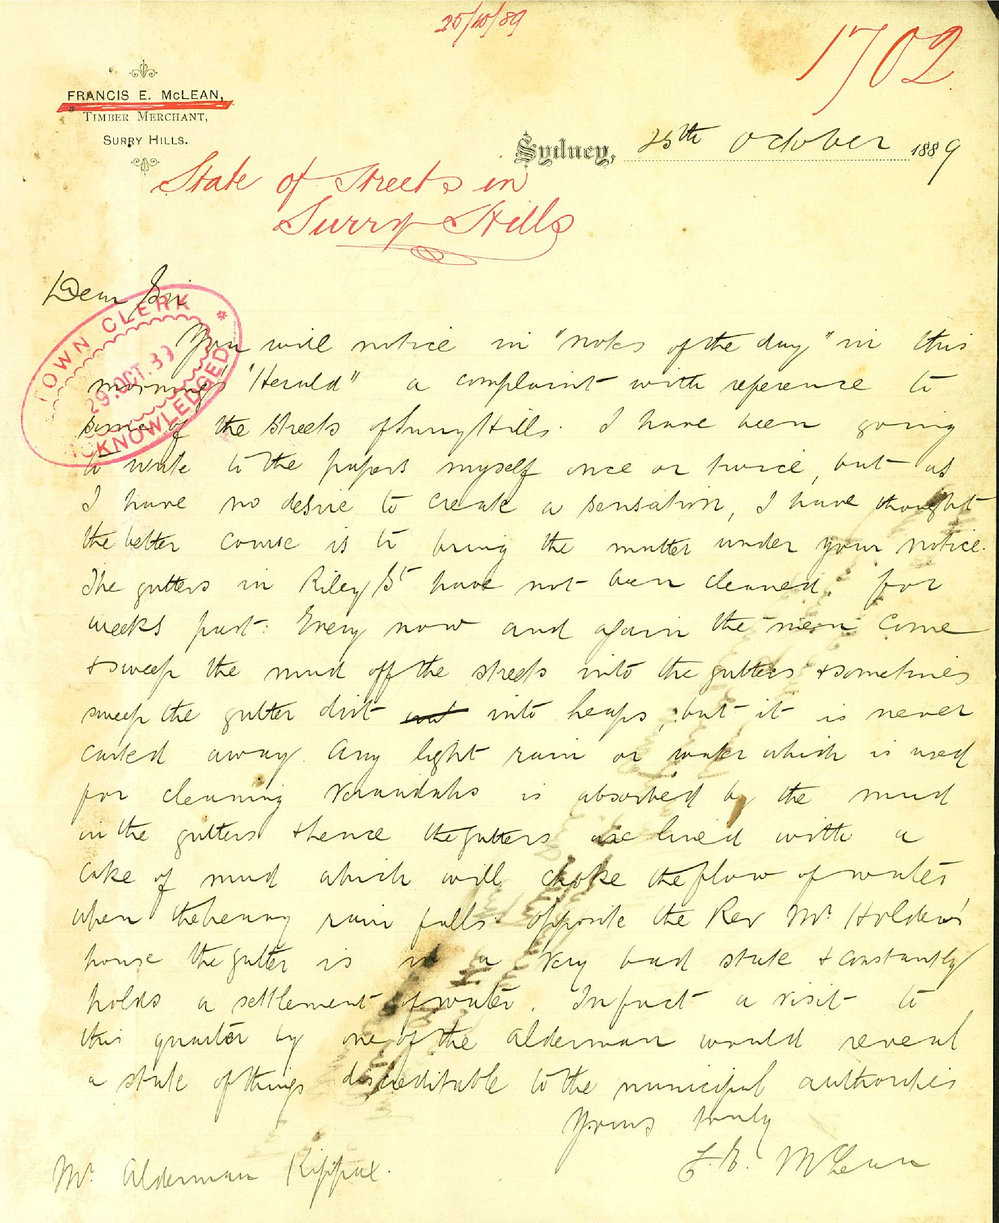 25/10/89
1702
FRANCIS E. McLEAN,
TIMBER MERCHANT,
SURRY HILLS.
Sydney, 25th October 1889
State of Streets in
Surry Hills
Dear Sir
TOWN CLERK
29.OCT.89
ACKNOWLEDGED
You will notice in "notes of the day" in this
morning's "Herald" a complaint with reference to
some of the streets of Surry Hills. I have been going
to write to the papers myself once or twice, but as
I have no desire to create a sensation, I have thought
the better course is to bring the matter under your notice.
The gutters in Riley St have not been cleaned for
weeks past. Every now and again the men come
& sweep the mud off the streets into the gutters & sometimes
sweep the gutter dirt out into heaps, but it is never
carted away. Any light rain or water which is used
for cleaning verandahs is absorbed by the mud
in the gutters & hence the gutters are lined with a
cake of mud which will choke the flow of water
when the heavy rain falls. Opposite the Rev Mr Holden's
house the gutter is in a very bad state & constantly
holds a settlement of water. In fact a visit to
this quarter by one of the alderman would reveal
a state of things discreditable to the municipal authorities
Yours truly
F. E. McLean
Mr Alderman Kippax.